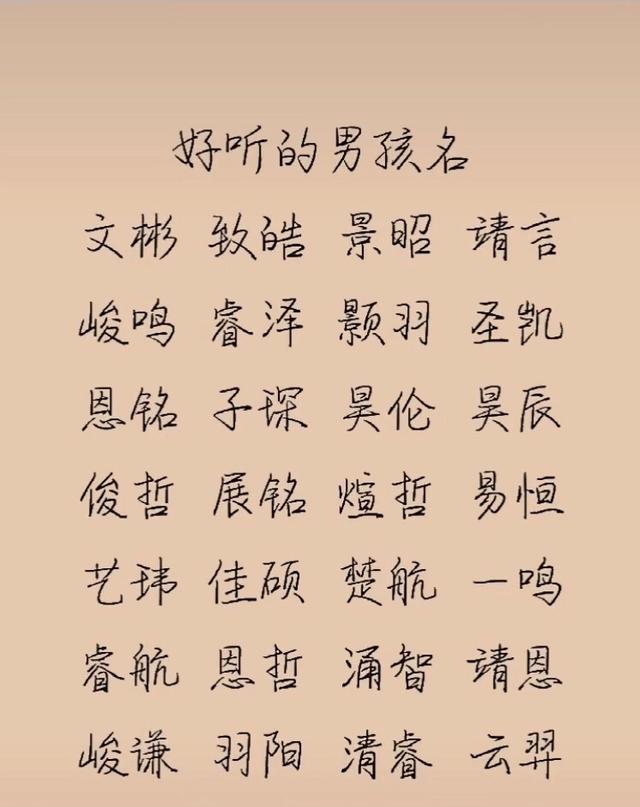 好听的男孩名
文彬 致皓 景昭 靖言
峻鸣 睿泽 颢羽 圣凯
恩铭 子琛 昊伦 昊辰
俊哲 展铭 煊哲 易恒
艺玮 佳硕 楚航 一鸣
睿航 恩哲 涌智 靖恩
峻谦 羽阳 清睿 云羿